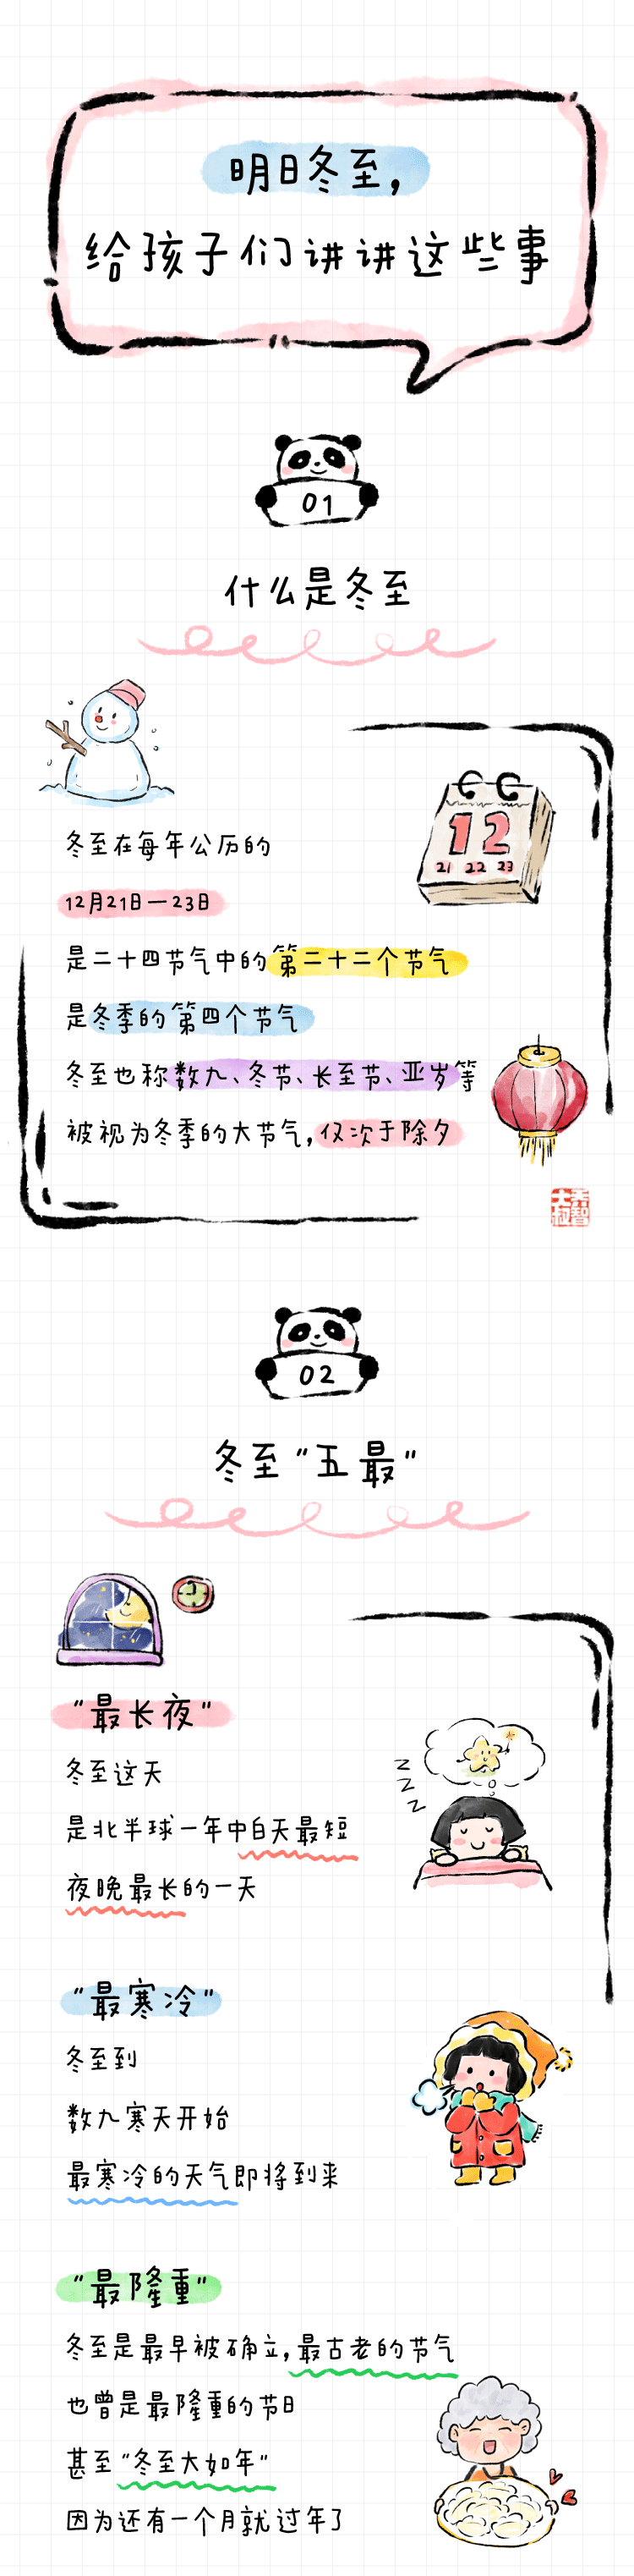 明日冬至，
给孩子们讲讲这些事
01
什么是冬至
12
21 22 23
冬至在每年公历的
12月21日—23日
是二十四节气中的第二十二个节气
是冬季的第四个节气
冬至也称数九、冬节、长至节、亚岁等
被视为冬季的大节气，仅次于除夕
02
冬至“五最”
“最长夜”
冬至这天
是北半球一年中白天最短
夜晚最长的一天
z
z
z
“最寒冷”
冬至到
数九寒天开始
最寒冷的天气即将到来
“最隆重”
冬至是最早被确立，最古老的节气
也曾是最隆重的节日
甚至“冬至大如年”
因为还有一个月就过年了